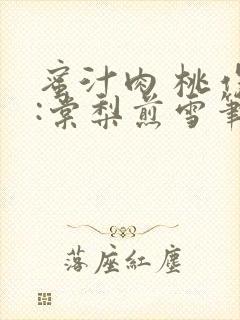 蜜汁肉桃
:棠梨煎雪筆
落座紅塵